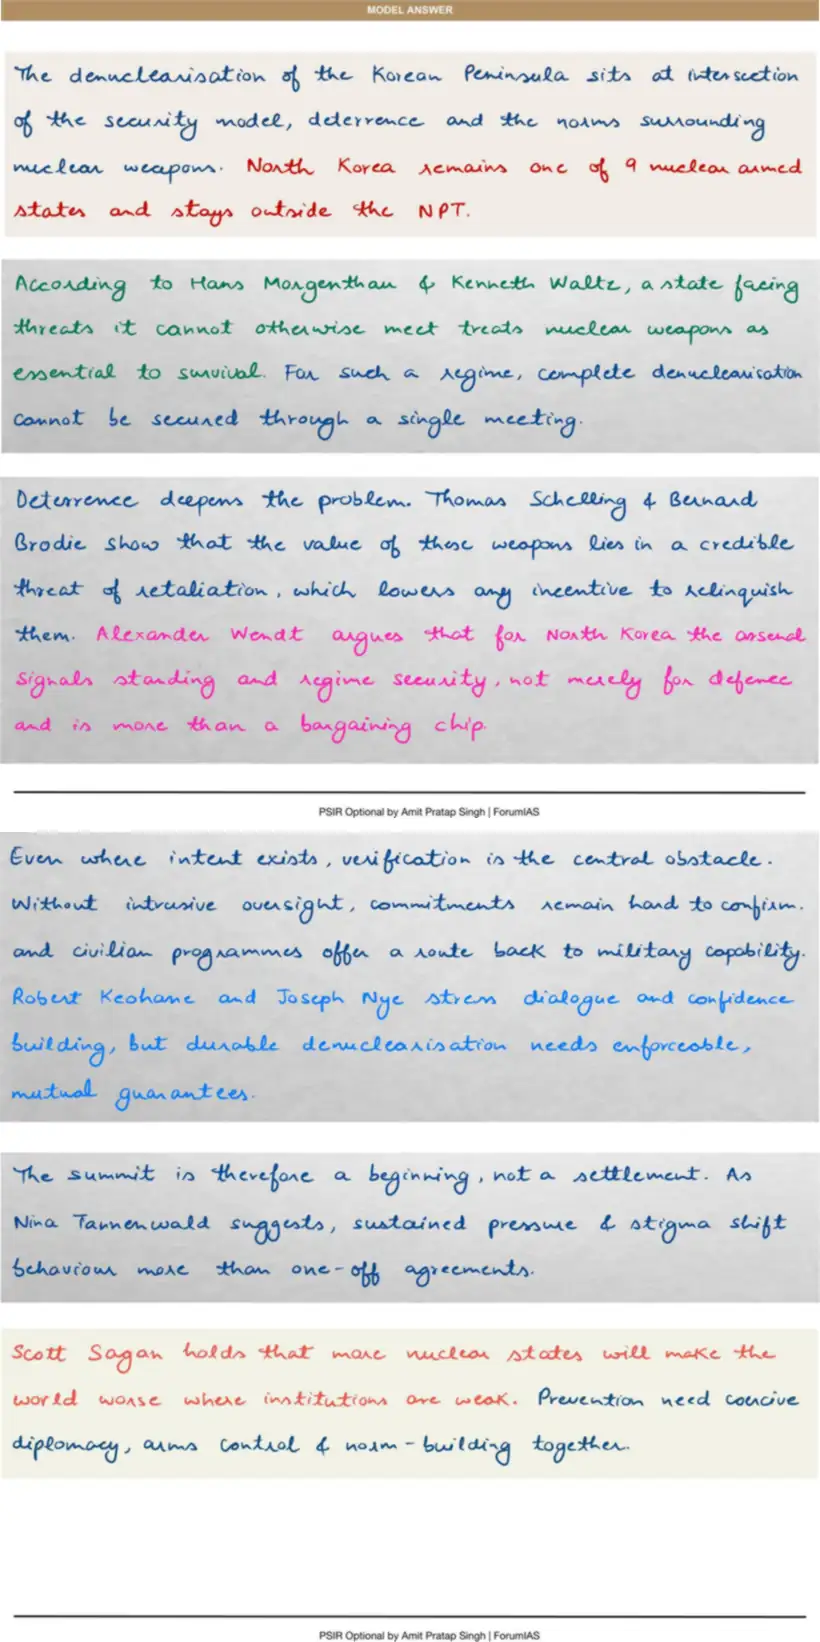 MODEL ANSWER
The denuclearisation of the Korean Peninsula sits at intersection
of the security model, deterrence and the norms surrounding
nuclear weapons. North Korea remains one of 9 nuclear armed
states and stays outside the NPT.
According to Hans Morgenthau & Kenneth Waltz, a state facing
threats it cannot otherwise meet treats nuclear weapons as
essential to survival. For such a regime, complete denuclearisation
cannot be secured through a single meeting.
Deterrence deepens the problem. Thomas Schelling & Bernard
Brodie show that the value of these weapons lies in a credible
threat of retaliation, which lowers any incentive to relinquish
them. Alexander Wendt argues that for North Korea the arsenal
signals standing and regime security, not merely for defence
and is more than a bargaining chip.
PSIR Optional by Amit Pratap Singh | ForumIAS
Even where intent exists, verification is the central obstacle.
Without intrusive oversight, commitments remain hard to confirm.
and civilian programmes offer a route back to military capability.
Robert Keohane and Joseph Nye stress dialogue and confidence
building, but durable denuclearisation needs enforceable,
mutual guarantees.
The summit is therefore a beginning, not a settlement. As
Nina Tannenwald suggests, sustained pressure & stigma shift
behaviour more than one-off agreements.
Scott Sagan holds that more nuclear states will make the
world worse where institutions are weak. Prevention need coercive
diplomacy, arms control & norm-building together.
PSIR Optional by Amit Pratap Singh | ForumIAS